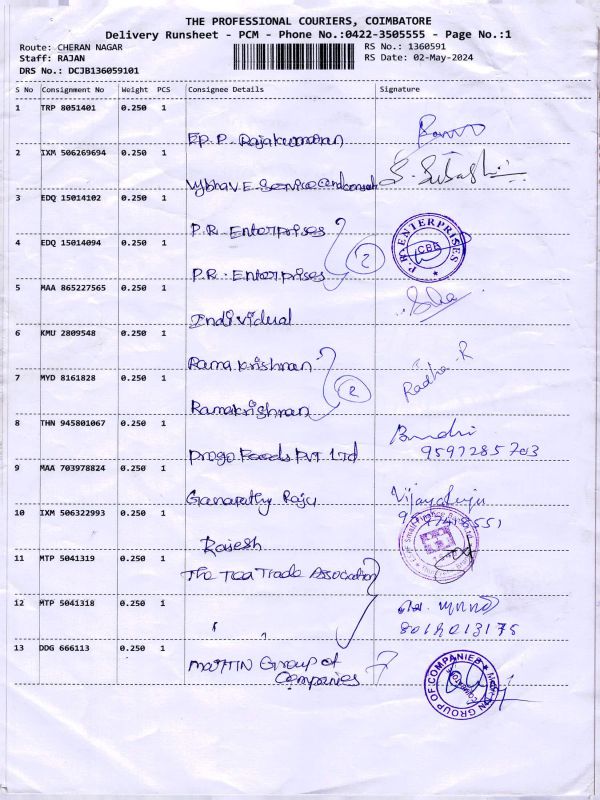 THE PROFESSIONAL COURIERS, COIMBATORE
Delivery Runsheet - PCM - Phone No.:0422-3505555 - Page No.:1
Route: CHERAN NAGAR RS No.: 1360591
Staff: RAJAN RS Date: 02-May-2024
DRS No.: DCJB136059101
S No Consignment No Weight PCS Consignee Details Signature
1 TRP 8051401 0.250 1
EP. P. Rajakumaran
2 IXM 506269694 0.250 1
Vybhav E-Service S. Subash
3 EDQ 15014102 0.250 1
P.R. Enterprises
4 EDQ 15014094 0.250 1
P.R. ENTERPRISES CBE
P.R. Enterprises 2
5 MAA 865227565 0.250 1
Individual
6 KMU 2809548 0.250 1
Rama Krishnan
7 MYD 8161828 0.250 1
Radha. R
Ramakrishnan 2
8 THN 945801067 0.250 1
Progo Foods Pvt Ltd 9597285703
9 MAA 703978824 0.250 1
Ganapathy Raju
10 IXM 506322993 0.250 1
Rajesh
Small Finance
11 MTP 5041319 0.250 1
The Tea Trade Association
12 MTP 5041318 0.250 1
" "
8012013175
13 DDG 666113 0.250 1
MARTIN Group of
Companies
GROUP OF COMPANIES